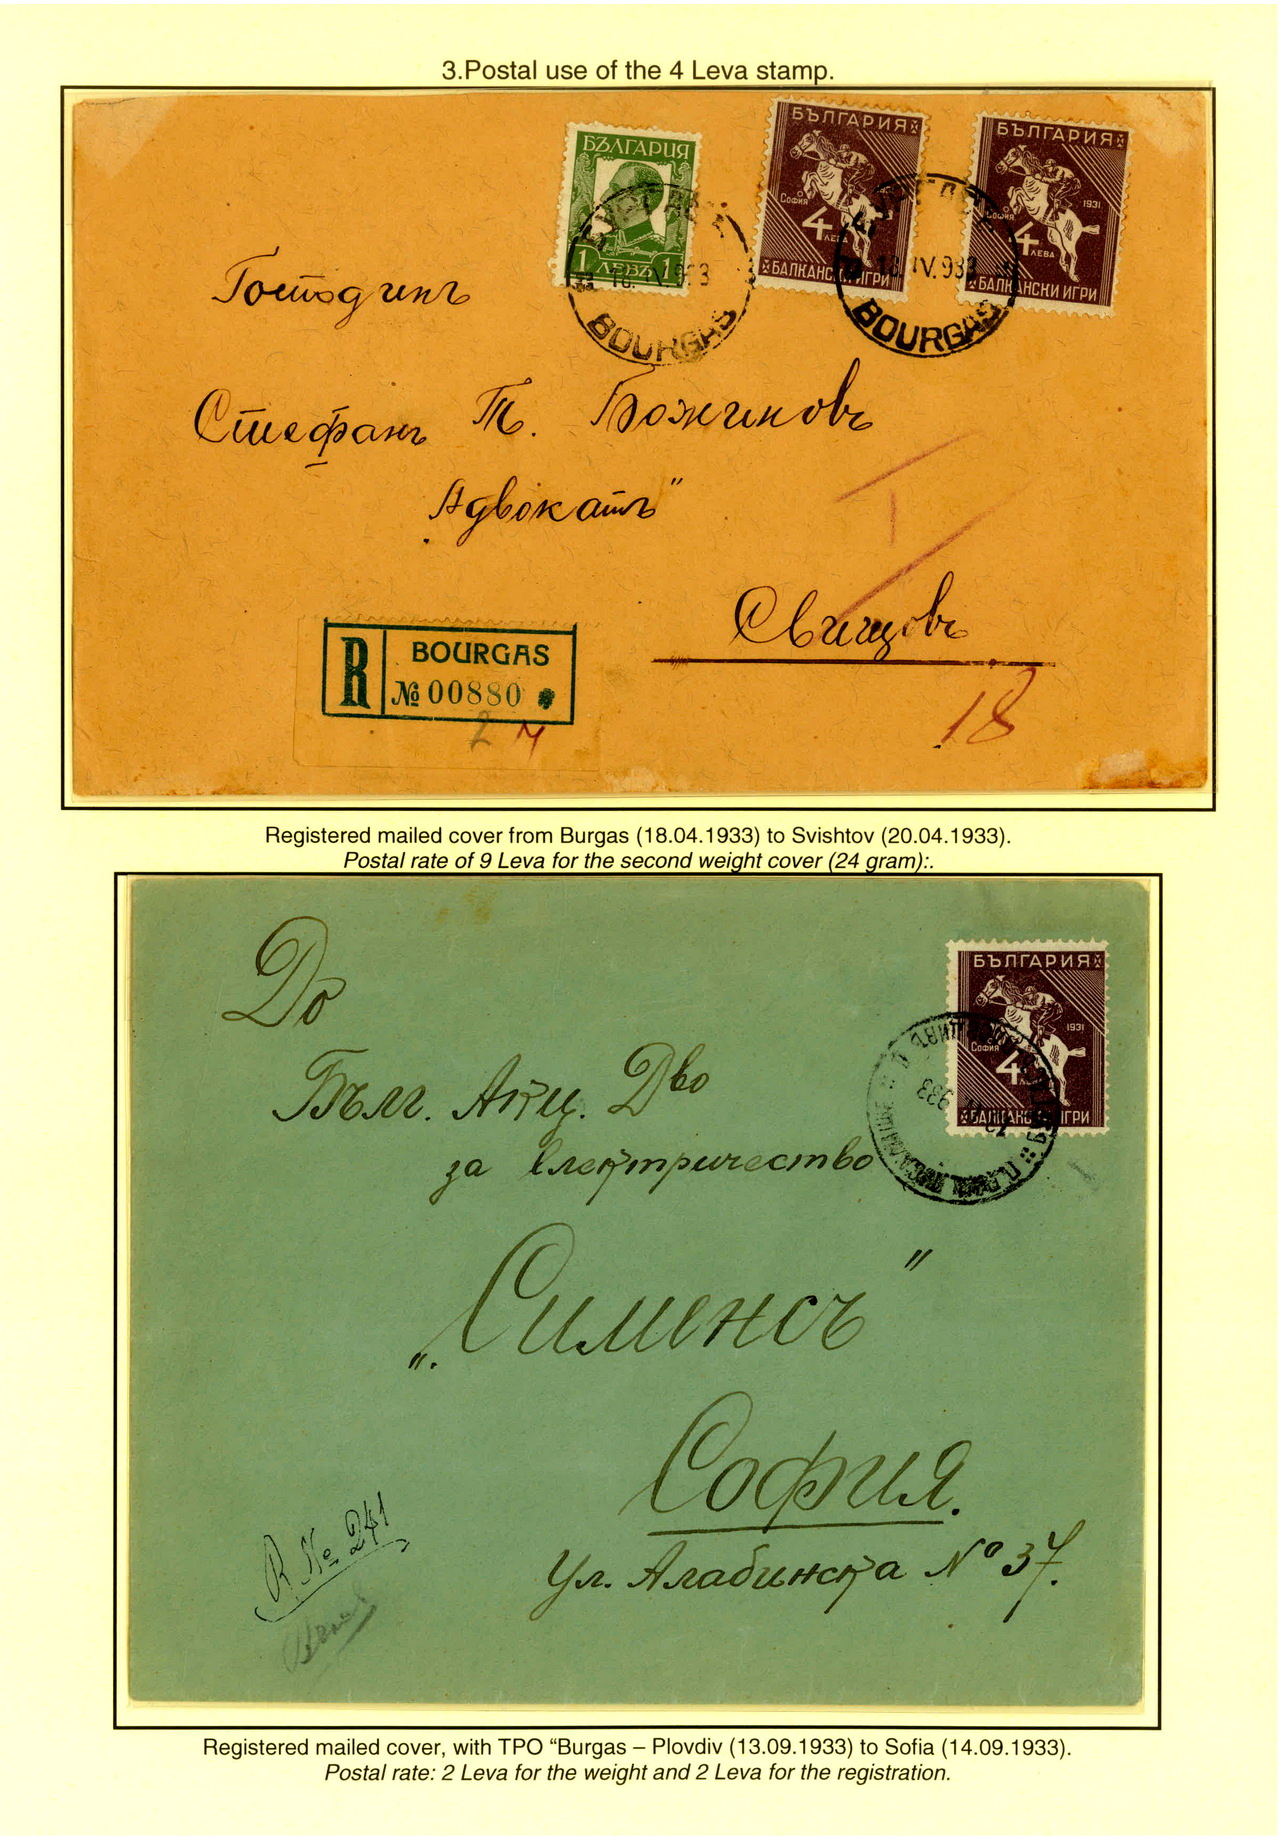 3.Postal use of the 4 Leva stamp.
БЪЛГАРИЯ
1 ЛЕВЪ 1
БЪЛГАРИЯ
София
4 ЛЕВА
БАЛКАНСКИ ИГРИ
БЪЛГАРИЯ
1931
София
4 ЛЕВА
БАЛКАНСКИ ИГРИ
18. IV. 933
BOURGAS
18. IV. 933
BOURGAS
Господинъ
Стефанъ Т. Божиновъ
Адвокатъ"
Свищовъ
R BOURGAS
№ 00880
18
Registered mailed cover from Burgas (18.04.1933) to Svishtov (20.04.1933).
Postal rate of 9 Leva for the second weight cover (24 gram):.
БЪЛГАРИЯ
1931
София
4
БАЛКАНСКИ ИГРИ
933
До
Бълг. Акц. Д-во
за електричество
„Сименсъ"
София.
Ул. Алабинска № 37.
R № 241
Registered mailed cover, with TPO “Burgas – Plovdiv (13.09.1933) to Sofia (14.09.1933).
Postal rate: 2 Leva for the weight and 2 Leva for the registration.